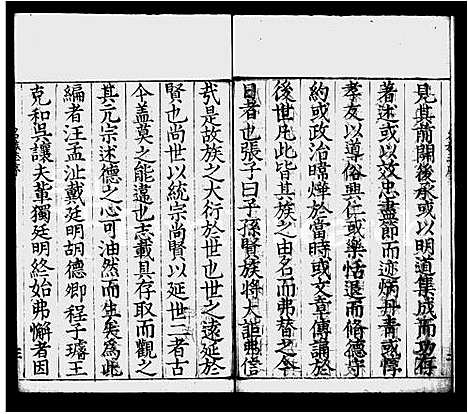 見其前開後承或以明道集成而功存
著述或以效忠盡節而迹炳丹青或惇
孝友以導俗興仁或樂恬退而脩德守
約或政治暐燁於當時或文章傳誦於
後世凡此皆其族之由名而弗替之令
具者也張子曰子孫賢族將大詎弗信
㢤是故族之大衍於世也世之遠延於
賢也尚世以統宗尚賢以延世二者古
今盖莫之能違也志載具存取而觀之
其亢宗述德之心可油然而生矣爲此
編者汪孟沚戴廷明胡德卿程子璿王
克和吳讓夫軰獨廷明終始弗懈者因